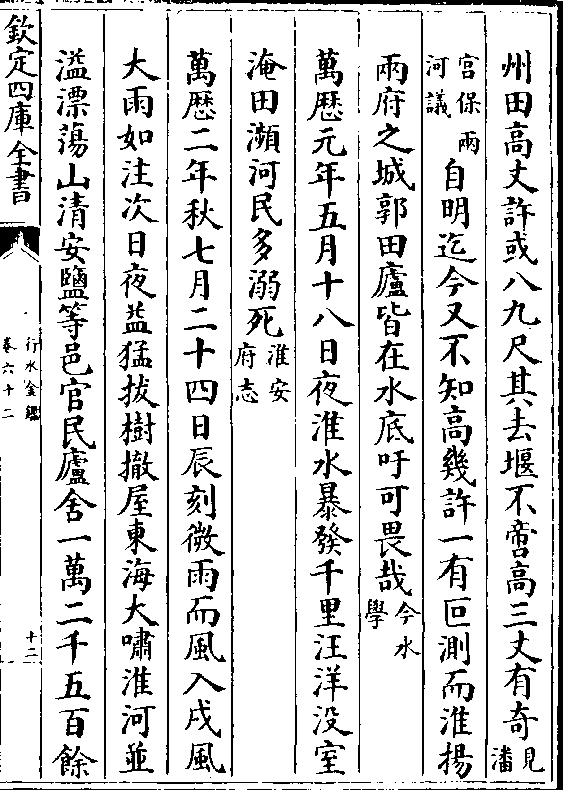 州田高丈許或八九尺其去堰不啻高三丈有奇見潘
宫保兩河議自明迄今又不知高幾許一有叵測而淮揚
兩府之城郭田廬皆在水底吁可畏哉今水學
萬厯元年五月十八日夜淮水暴發千里汪洋没室
淹田瀕河民多溺死淮安府志
萬厯二年秋七月二十四日辰刻微雨而風入戌風
大雨如注次日夜益猛拔樹撤屋東海大嘯淮河並
溢漂蕩山清安鹽等邑官民廬舍一萬二千五百餘
欽定四庫全書
行水金鑑
卷六十二
十二